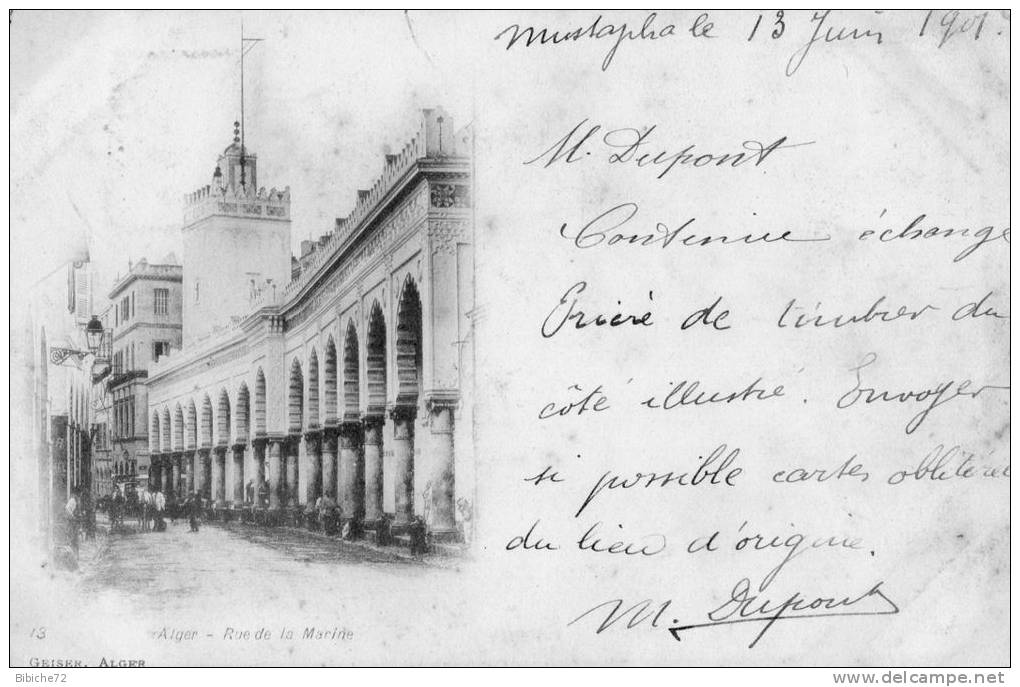 Mustapha le 13 Juin 1901.
M. Dupont.
Continue échange
Prière de timbrer du
côté illustré. Envoyer
si possible cartes oblitérées
du lieu d'origine.
M. Dupont
13 Alger - Rue de la Marine
GEISER, ALGER
Bibiche72
www.delcampe.net